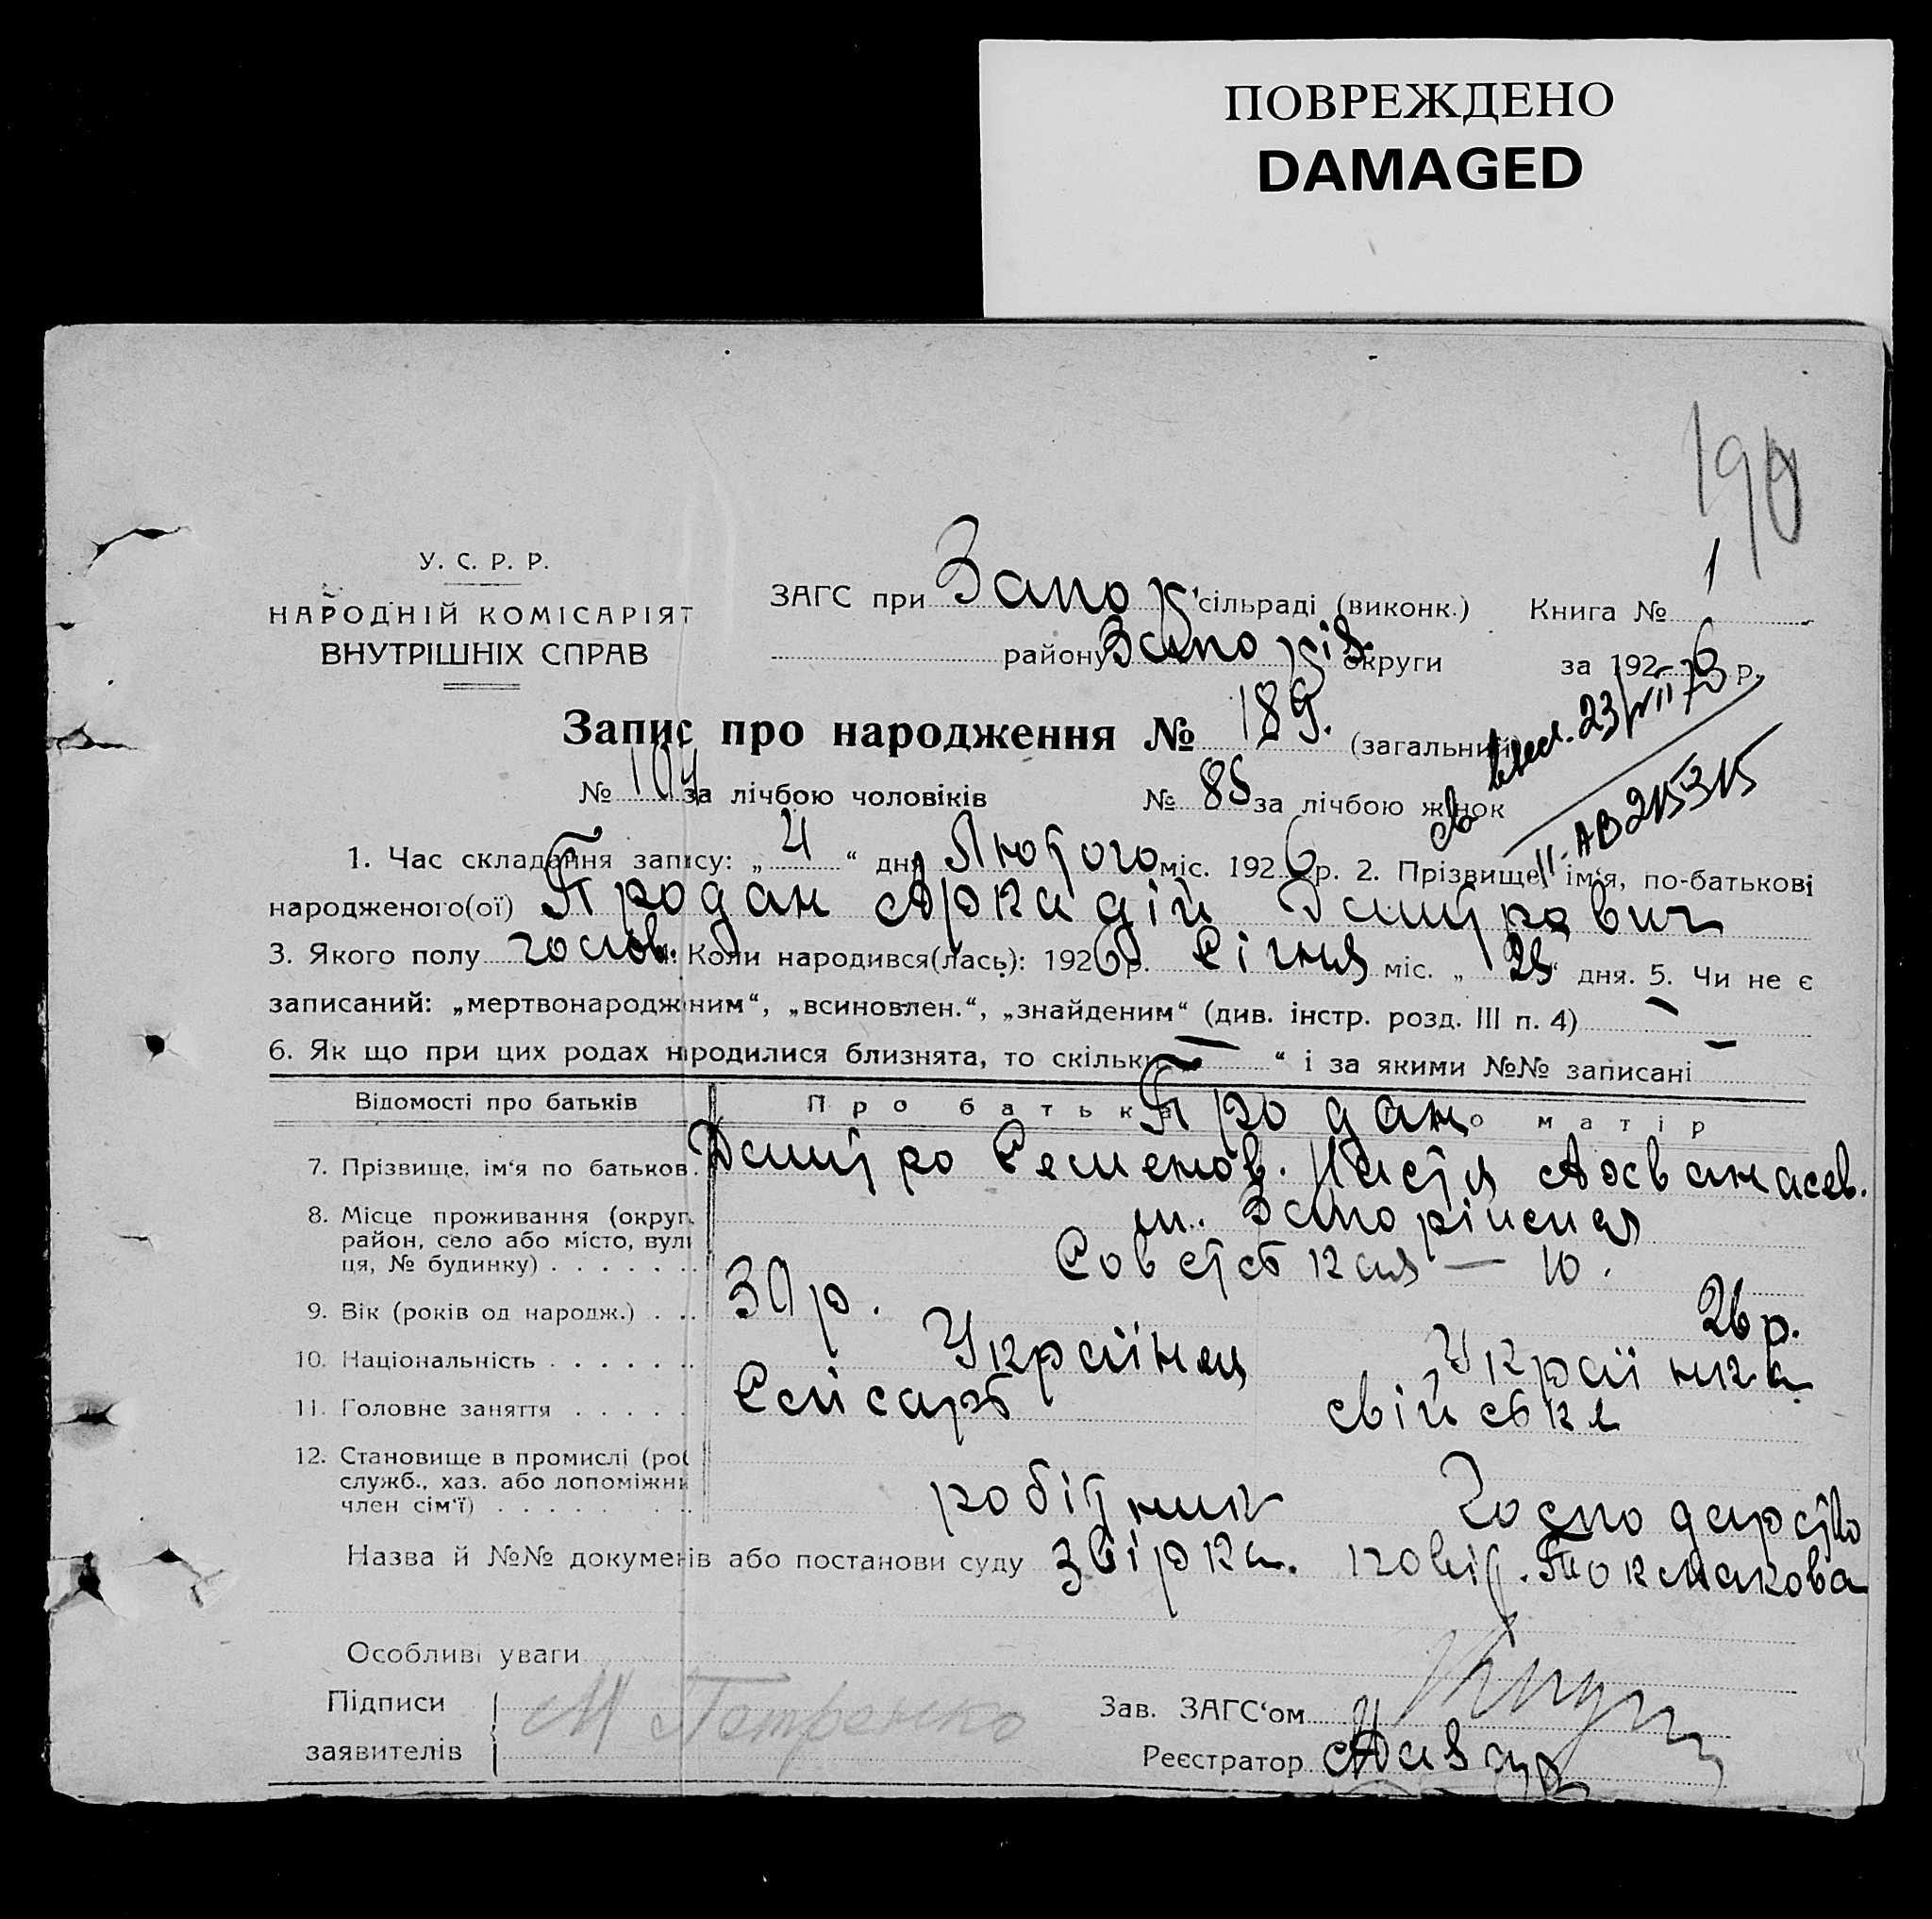 ПОВРЕЖДЕНО
DAMAGED
190
У. С. Р. Р.
НАРОДНІЙ КОМІСАРІЯТ
ВНУТРІШНІХ СПРАВ
ЗАГС при Запор. сільраді (виконк.) Книга № 1
району Запоріз. округи за 1926 р.
Запис про народження № 189. (загальний)
№ 104 за лічбою чоловіків № 85 за лічбою жінок
св 23/VII 70
II-АВ 215315
1. Час складання запису: „ 4 “ дня Лютого міс. 1926 р. 2. Прізвище, ім'я, по-батькові
народженого(ої) Продан Аркадій Дмитрович
3. Якого полу чолов. 4. Коли народився(лась): 1926 р. Січня міс. „ 28 “ дня. 5. Чи не є
записаний: „мертвонародженим“, „всиновлен.“, „знайденим“ (див. інстр. розд. III п. 4) —
6. Як що при цих родах народилися близнята, то скільки — “ і за якими №№ записані —
Відомості про батьків Про батька Про матір
Продан
7. Прізвище, ім'я по батьков. Дмитро Семенов. Настя Афванасев.
8. Місце проживання (округ, м. Запоріжжя
район, село або місто, вули
ця, № будинку) . . . . . . . Совєтськая — 10.
9. Вік (років од народж.) . . . 30 р. 26 р.
10. Національність . . . . . . Українец Українка
11. Головне заняття . . . . . Слісарь свійська
12. Становище в промислі (роб
служб., хаз. або допоміжни
член сім'ї) . . . . . . . робітник господарство
Назва й №№ документів або постанови суду Звірка. Токмакова
Особливі уваги
Підписи
заявителів М Петренко
Зав. ЗАГС'ом
Реєстратор